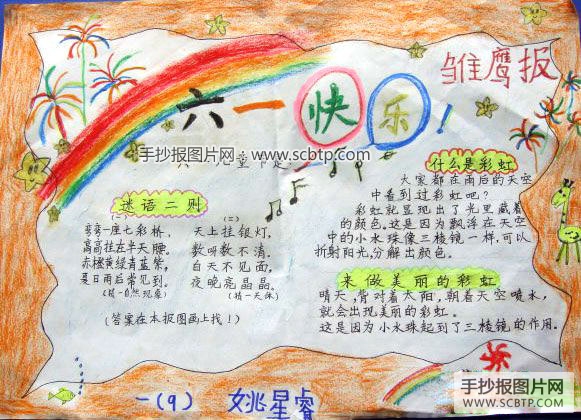 雏鹰报
六一快乐!
手抄报图片网:www.scbtp.com
谜语二则
(一)
弯弯一座七彩桥,
高高挂在半天腰。
赤橙黄绿青蓝紫,
夏日雨后常见到。
(猜一自然现象)
(二)
天上挂银灯,
数呀数不清。
白天不见面,
夜晚亮晶晶。
(猜一天体)
(答案在本报图画上找!)
什么是彩虹
大家都在雨后的天空
中看到过彩虹吧?
彩虹就显现出了光里藏着
的颜色。这是因为飘浮在天空
中的小水珠像三棱镜一样,可以
折射阳光,分解出颜色。
来做美丽的彩虹
晴天,背对着太阳,朝着天空喷水,
就会出现美丽的彩虹。
这是因为小水珠起到了三棱镜的作用。
一(9) 姚星睿
手抄报图片网
WWW.SCBTP.COM